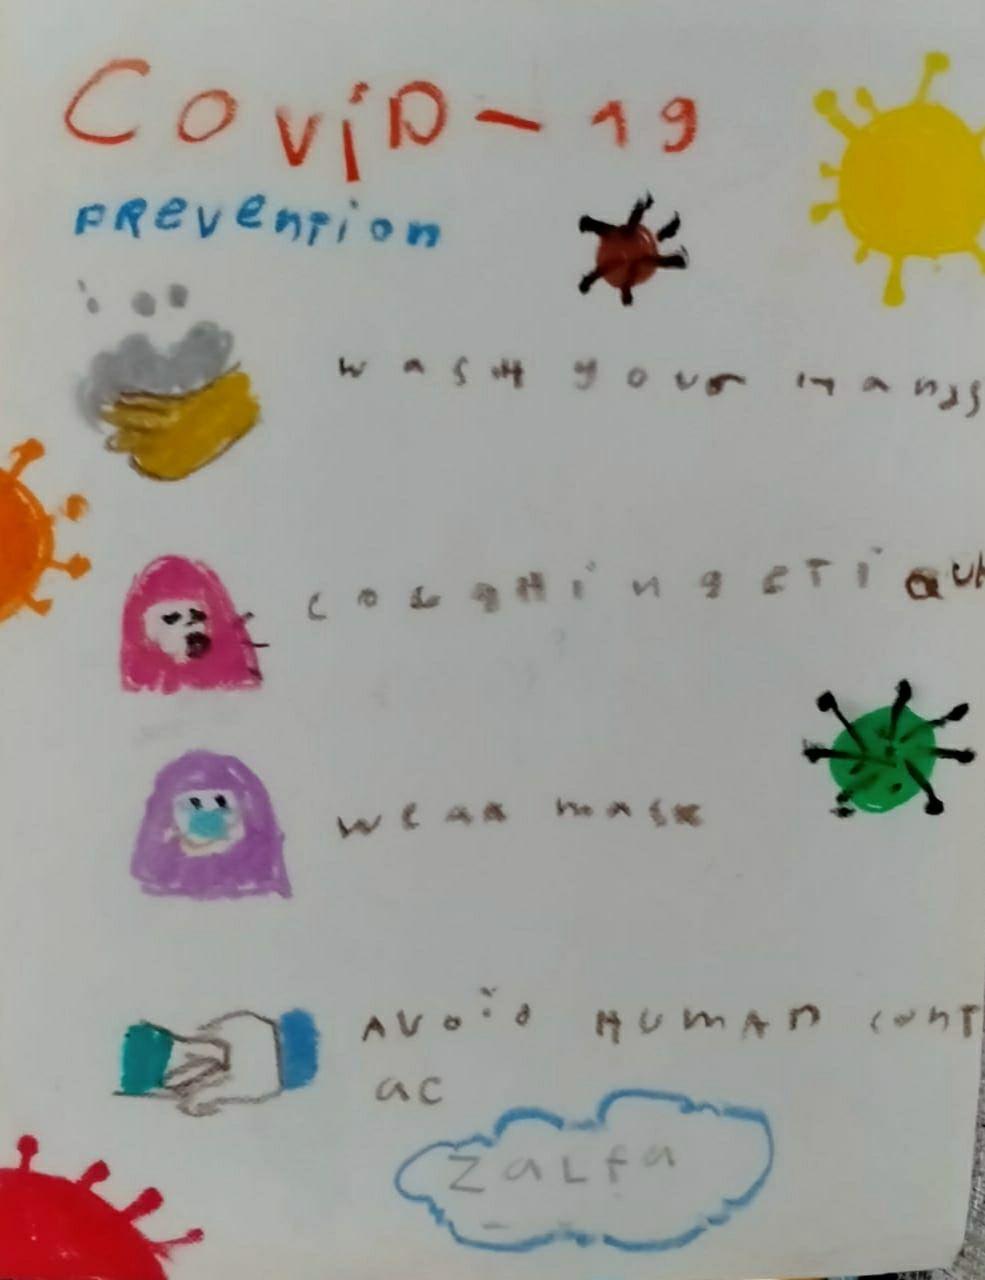 CoviD-19
PRevenTion
wasH your Hands
cougHing eTiqu
wear mask
AVoid HUMAN conT
ac
ZaLfa